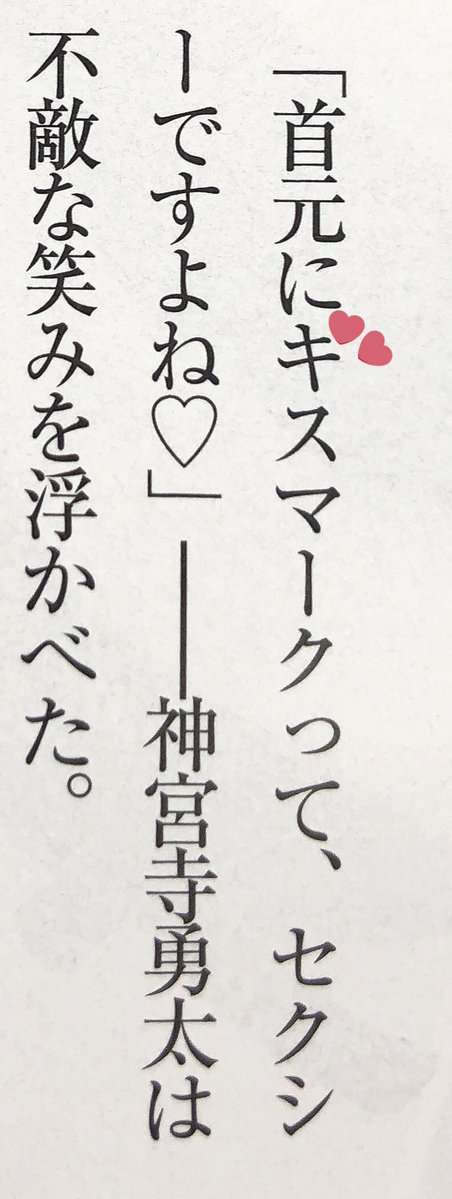 「首元にキスマークって、セクシ
ーですよね♡」――神宮寺勇太は
不敵な笑みを浮かべた。